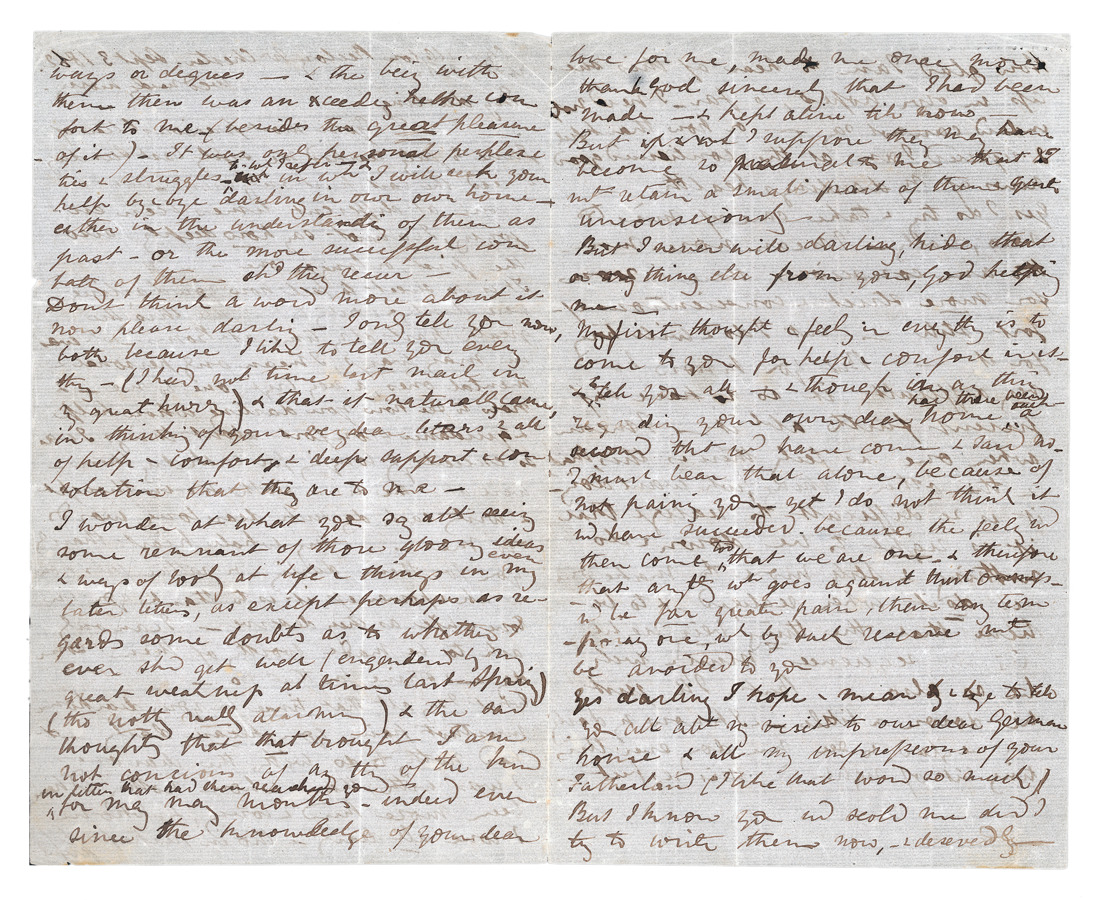 ways or degrees — & the being with
them then was an exceedig help & com
fort to me (besides the great pleasure
of it) — It was only personal perplexi
ties & struggles in wh I will seek your
help bye & bye darling in our own home —
either in the understanding of them as
past — or the more successful com
batg of them shd they recur —
Dont think a word more about it
now please darling — I only tell you now,
both because I like to tell you every
thg — (I had not time last mail in
my great hurry) & that it naturally came,
in thinking of your very dear letters & all
of help & comfort, & deep support & con
solation that they are to me —
I wonder at what you say abt seeing
some remnant of those gloomy ideas
& ways of lookg at life & things in my even
later letters, as except perhaps as re-
gards some doubts as to whether I
ever shd get well (engendered by my
great weakness at times last Spring)
(tho nothg really alarming) & the sad
thoughts that that brought I am
not concious of any thg of the kind
in letters that had then reached you
for many many months — indeed ever
since the knowledge of your dear
love for me, made me once more
thank God sincerely that I had been
made — & kept alive till now
But I suppose they may have
become so natural to me that I
mt retain a small part of them quite
unconsciously —
But I never will darling, hide that
or any thing else from you, God helping
me —
My first thought & feelg in every thg is to
come to you for help & comfort in it —
& to tell you all — & though in any thing
regarding your own dear home, had there been such a
second tht wd have come & said no —
I must bear that alone, because of
not paining you — yet I do not think it
wd have succeeded because the feelg wd
then come too, that we are one & therefore
that any thg wh goes against that oneness —
wd be far greater pain, than any tem
-porary one, wh by such reserve mt
be avoided to you
Yes darling I hope & mean by & bye to tell
you all abt my visit to our dear German
house & all my impressions of your
Fatherland (I like that word so much)
But I know you wd scold me did I
try to write them now, — & deservedly —